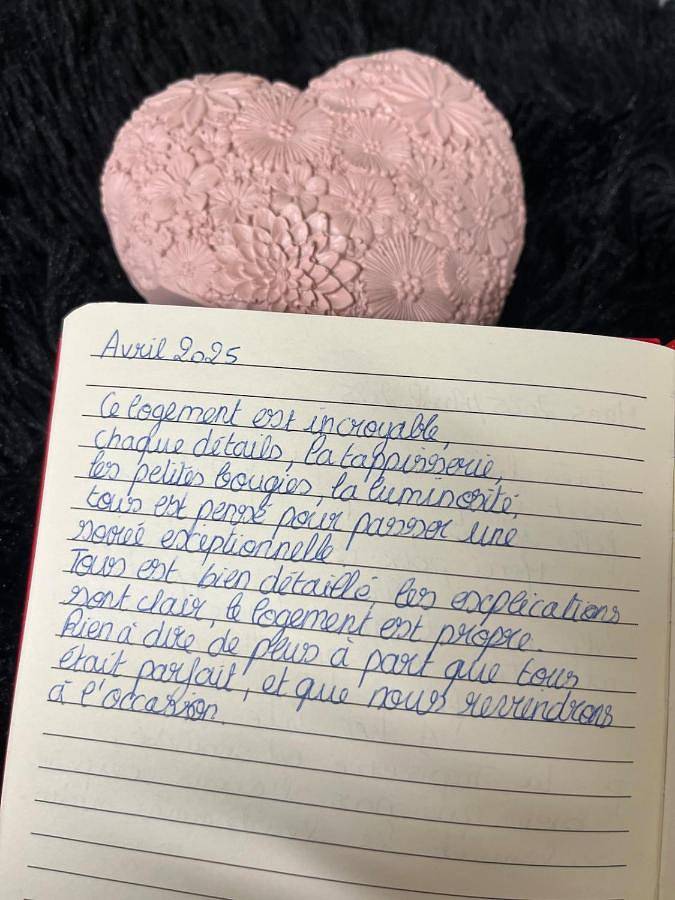 Avril 2025
Ce logement est incroyable,
chaque détails, la tappisserie,
les petites bougies, la luminosité,
tous est pensé pour passer une
soirée exceptionnelle.
Tous est bien détaillé, les explications
sont clair, le logement est propre.
Rien à dire de plus à part que tous
était parfait, et que nous reviendrons
à l'occasion.